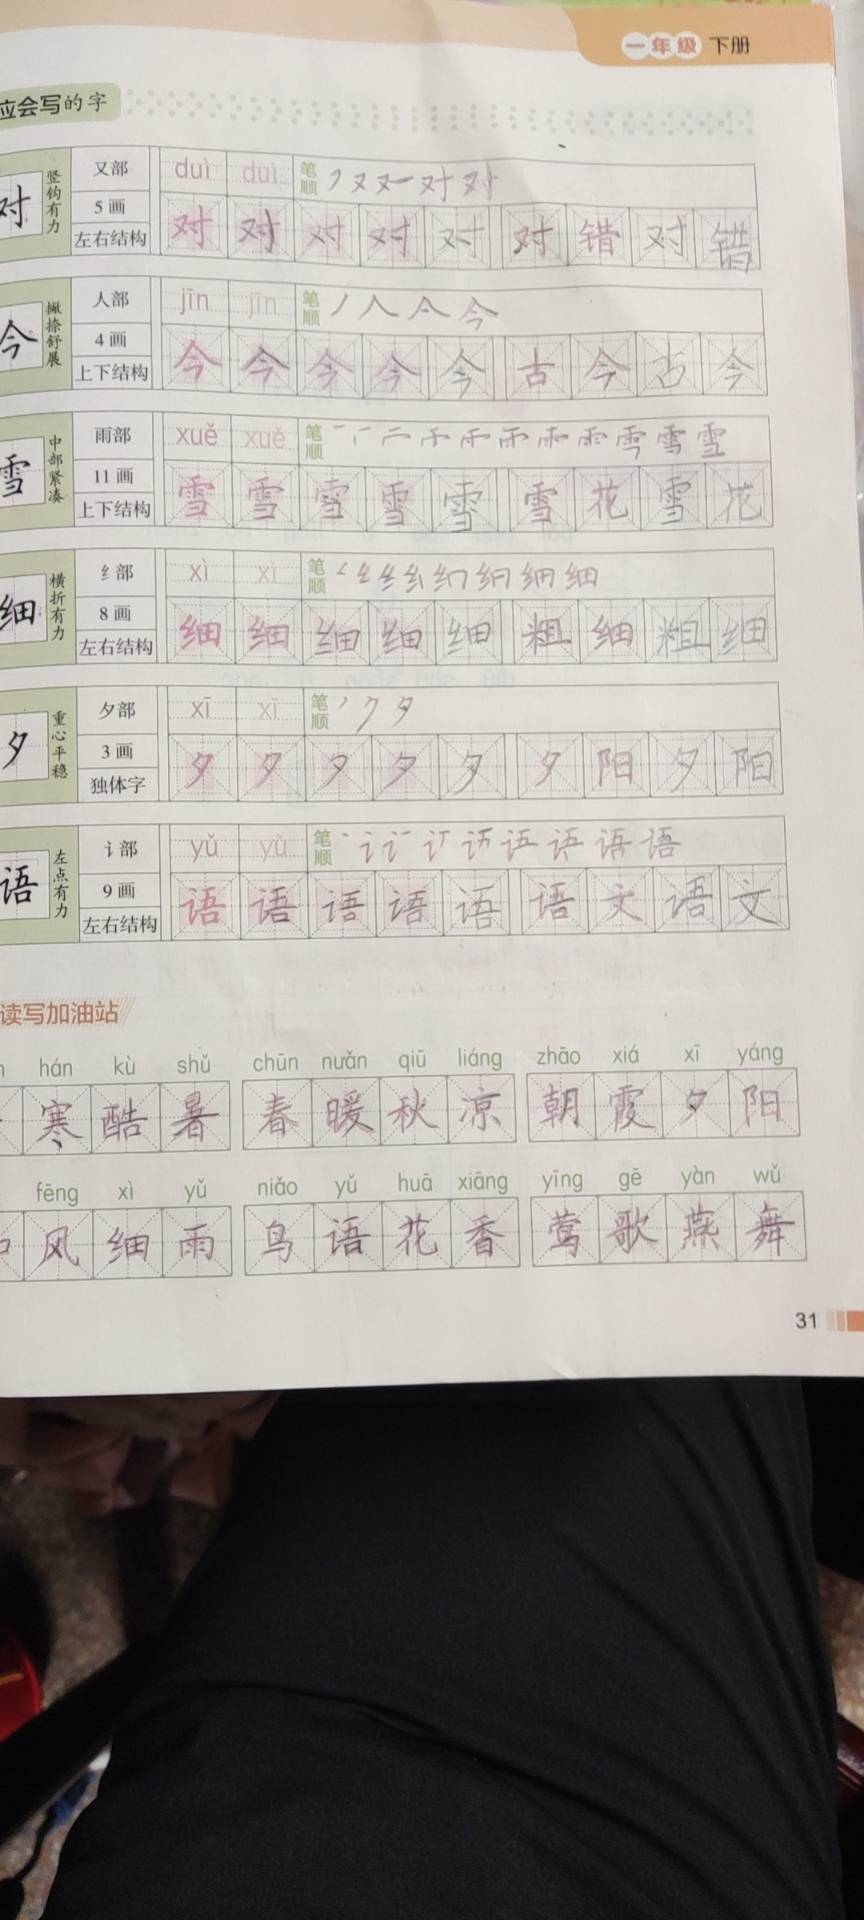 一年级 下册
应会写的字
对 竖钩有力 又部 5画 左右结构 duì duì 笔顺 对 对
对 对 对 对 对 对 错 对 错
今 撇捺舒展 人部 4画 上下结构 jīn jīn 笔顺 丿 人 亼 今
今 今 今 今 今 古 今 古 今
雪 中部紧凑 雨部 11画 上下结构 xuě xuě 笔顺 雪
雪 雪 雪 雪 雪 雪 花 雪 花
细 横折有力 纟部 8画 左右结构 xì xì 笔顺 细
细 细 细 细 细 粗 细 粗 细
夕 重心平稳 夕部 3画 独体字 xī xī 笔顺 丿 ク 夕
夕 夕 夕 夕 夕 夕 阳 夕 阳
语 左点有力 讠部 9画 左右结构 yǔ yǔ 笔顺 语
语 语 语 语 语 语 文 语 文
读写加油站
hán kù shǔ chūn nuǎn qiū liáng zhāo xiá xī yáng
寒 酷 暑 春 暖 秋 凉 朝 霞 夕 阳
fēng xì yǔ niǎo yǔ huā xiāng yīng gē yàn wǔ
风 细 雨 鸟 语 花 香 莺 歌 燕 舞
31